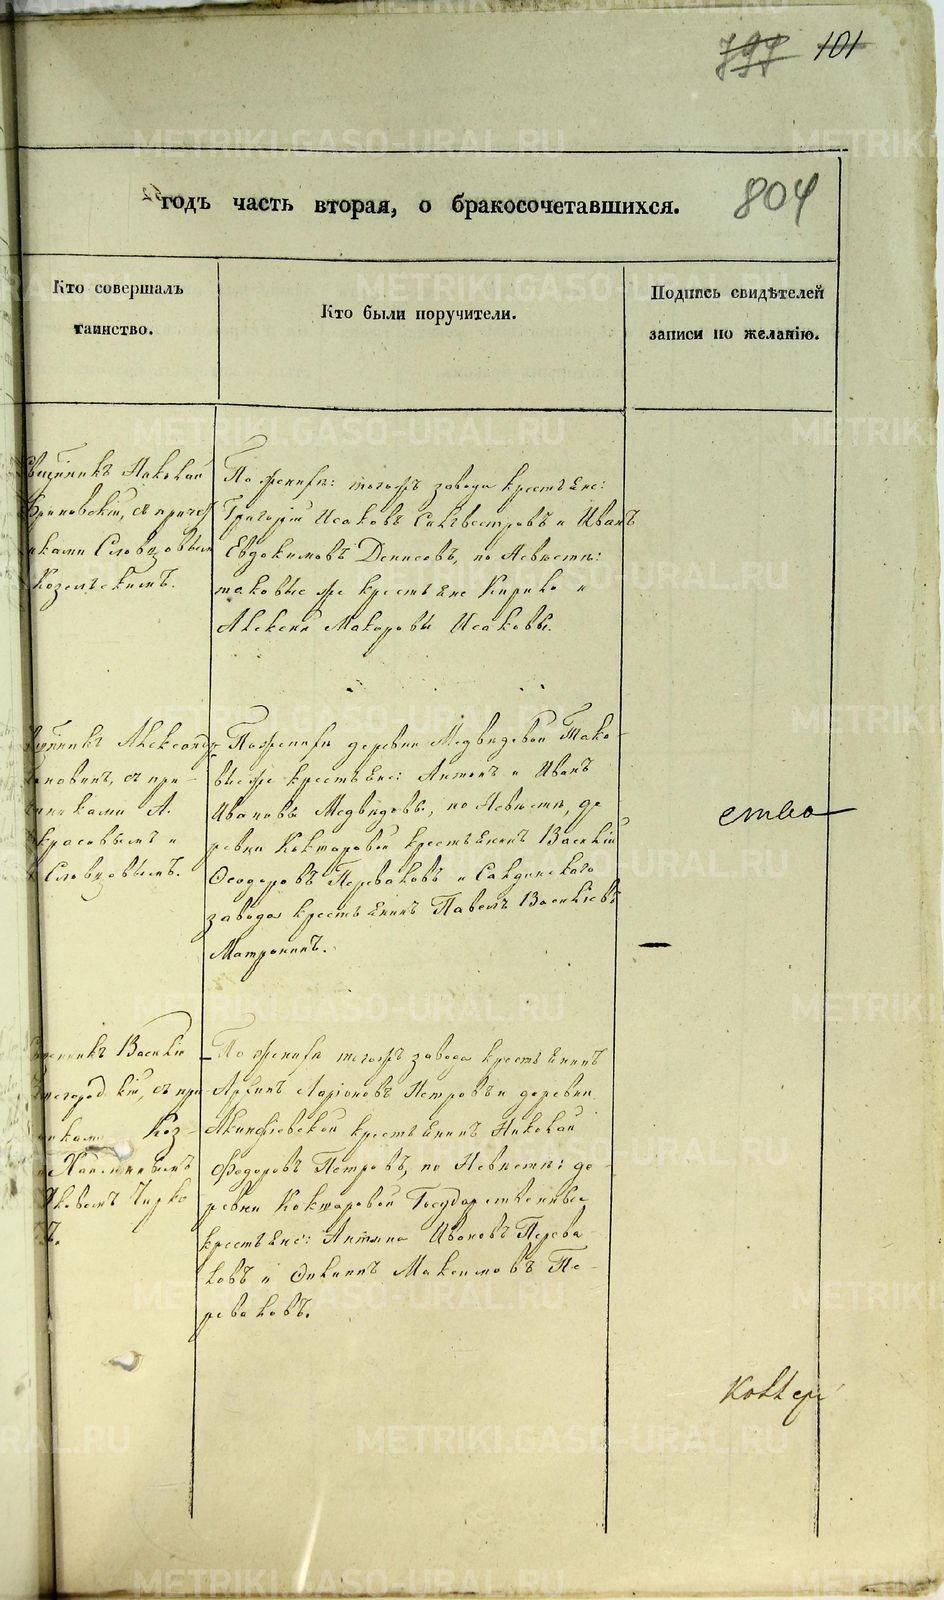 797 101
годъ часть вторая, о бракосочетавшихся.
804
Кто совершалъ
таинство.
Кто были поручители.
Подпись свидѣтелей
записи по желанію.
Священникъ Николай
съ причет
никами Словцовымъ
Козельскимъ.
По женихѣ: тогожъ завода крестьяне:
Григорій Исаковъ Сильвестровъ и Иванъ
Евдокимовъ Денисовъ, по Невѣстѣ:
таковые же крестьяне Кирило и
Алексѣй Макаровы Исаковы.
Александръ
съ при
никами А.
красовымъ и
Словцовымъ.
По женихѣ деревни Медвѣдевой Тако-
вые же крестьяне: Антонъ и Иванъ
Ивановы Медвѣдевы, по Невѣстѣ, де
ревни Кокшаровой крестьянинъ Василій
Ѳеодоровъ Переваловъ и Салдинскаго
завода крестьянинъ Павелъ Васильевъ
Матронинъ.
Василій
съ при
никами Коз-
По женихѣ тогожъ завода крестьянинъ
Ларіоновъ Петровъ и деревни
Акинфіевской крестьянинъ Николай
Федоровъ Петровъ, по Невѣстѣ: де-
ревни Кокшаровой Государственные
крестьяне: Антипа Ивановъ Перева-
ловъ и Максимовъ Пе-
реваловъ.
ство
METRIKI.GASO-URAL.RU